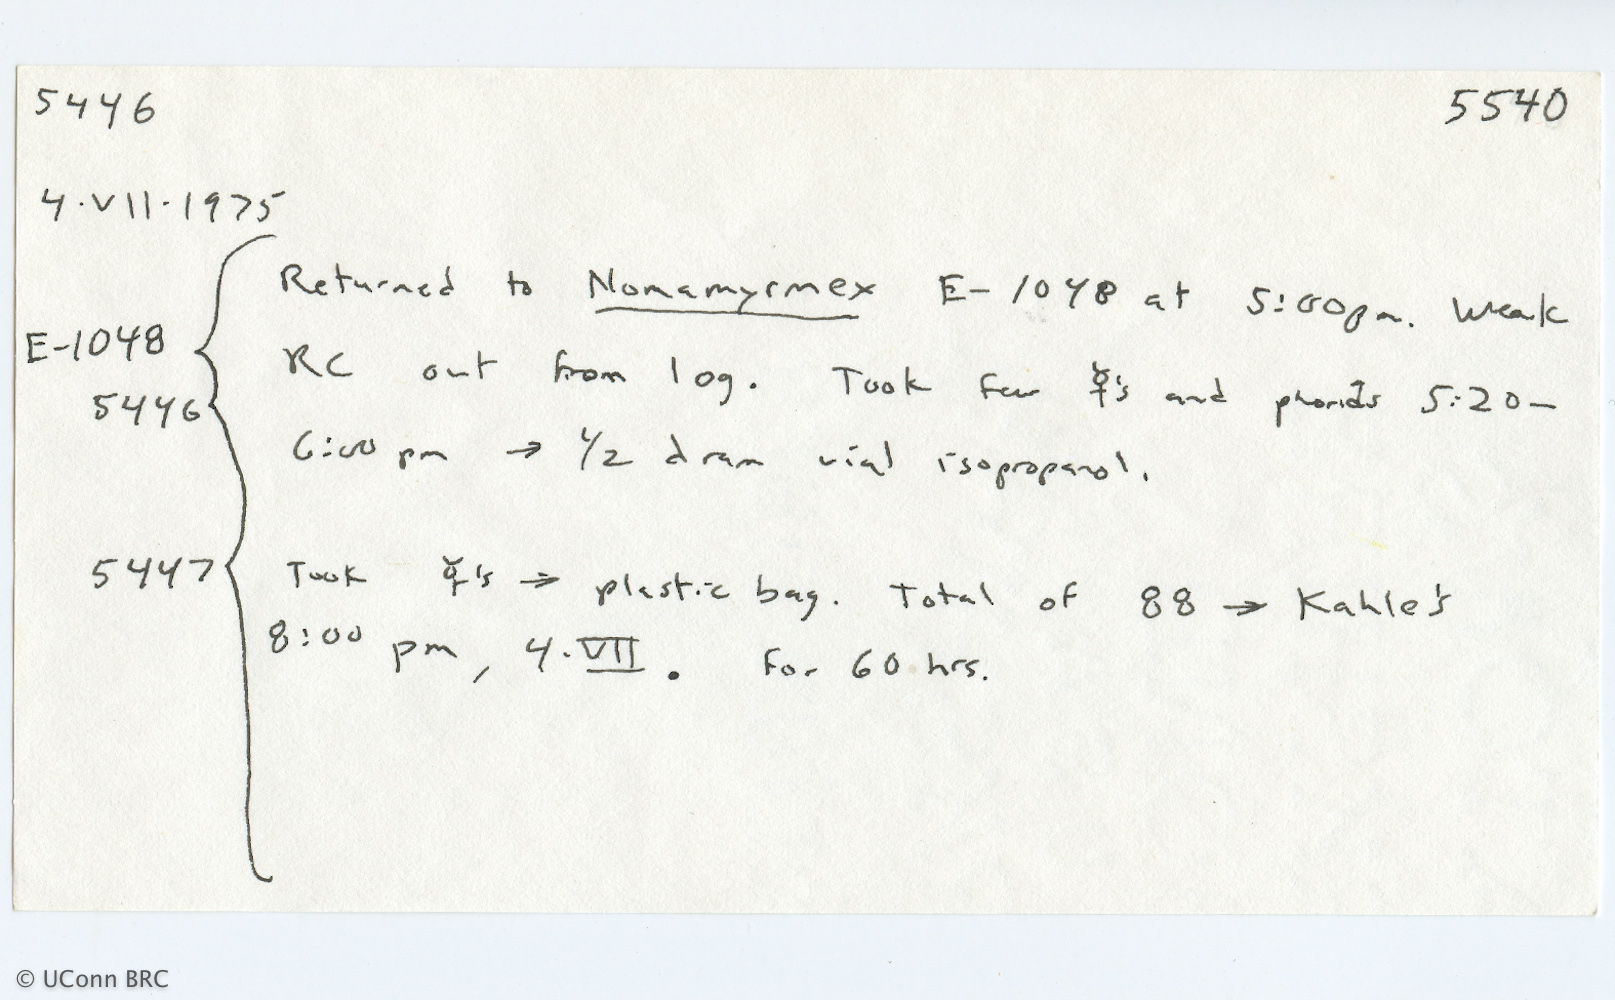 5446 5540
4·VII·1975
Returned to Nomamyrmex E-1048 at 5:00pm. Weak
E-1048
RC out from log. Took few ☿'s and phorids 5:20–
5446
6:00 pm → 1/2 dram vial isopropanol.
5447 Took ☿'s → plastic bag. Total of 88 → Kahle's
8:00 pm, 4·VII. For 60 hrs.
© UConn BRC